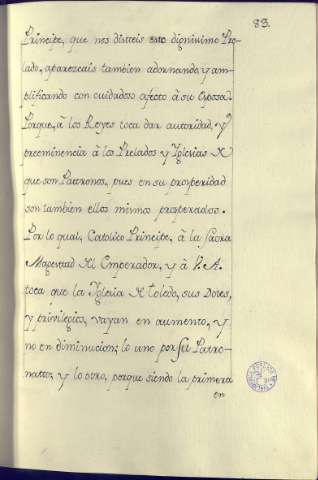 83.
Principe, que nos disteis este dignissimo Pre-
lado, aparezcais tambien adornando, y am-
plificando con cuidadoso afecto à su Esposa.
Porque, à los Reyes toca dar autoridad, y
preeminencia à los Prelados y Iglesias de
que son Patronos, pues en su prosperidad
son tambien ellos mismos prosperados.
Por lo qual, Catolico Principe, à la Sacra
Magestad del Emperador, y à V. A.
toca que la Iglesia de Toledo, sus Dotes,
y privilegios, vayan en aumento, y
no en diminucion; lo uno por ser Patro-
nattos, y lo otro, porque siendo la primera
en